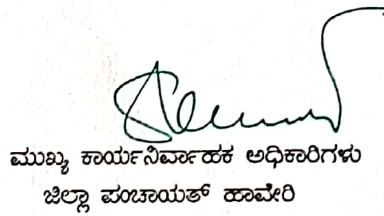 ಮುಖ್ಯ ಕಾರ್ಯನಿರ್ವಾಹಕ ಅಧಿಕಾರಿಗಳು
ಜಿಲ್ಲಾ ಪಂಚಾಯತ್ ಹಾವೇರಿ